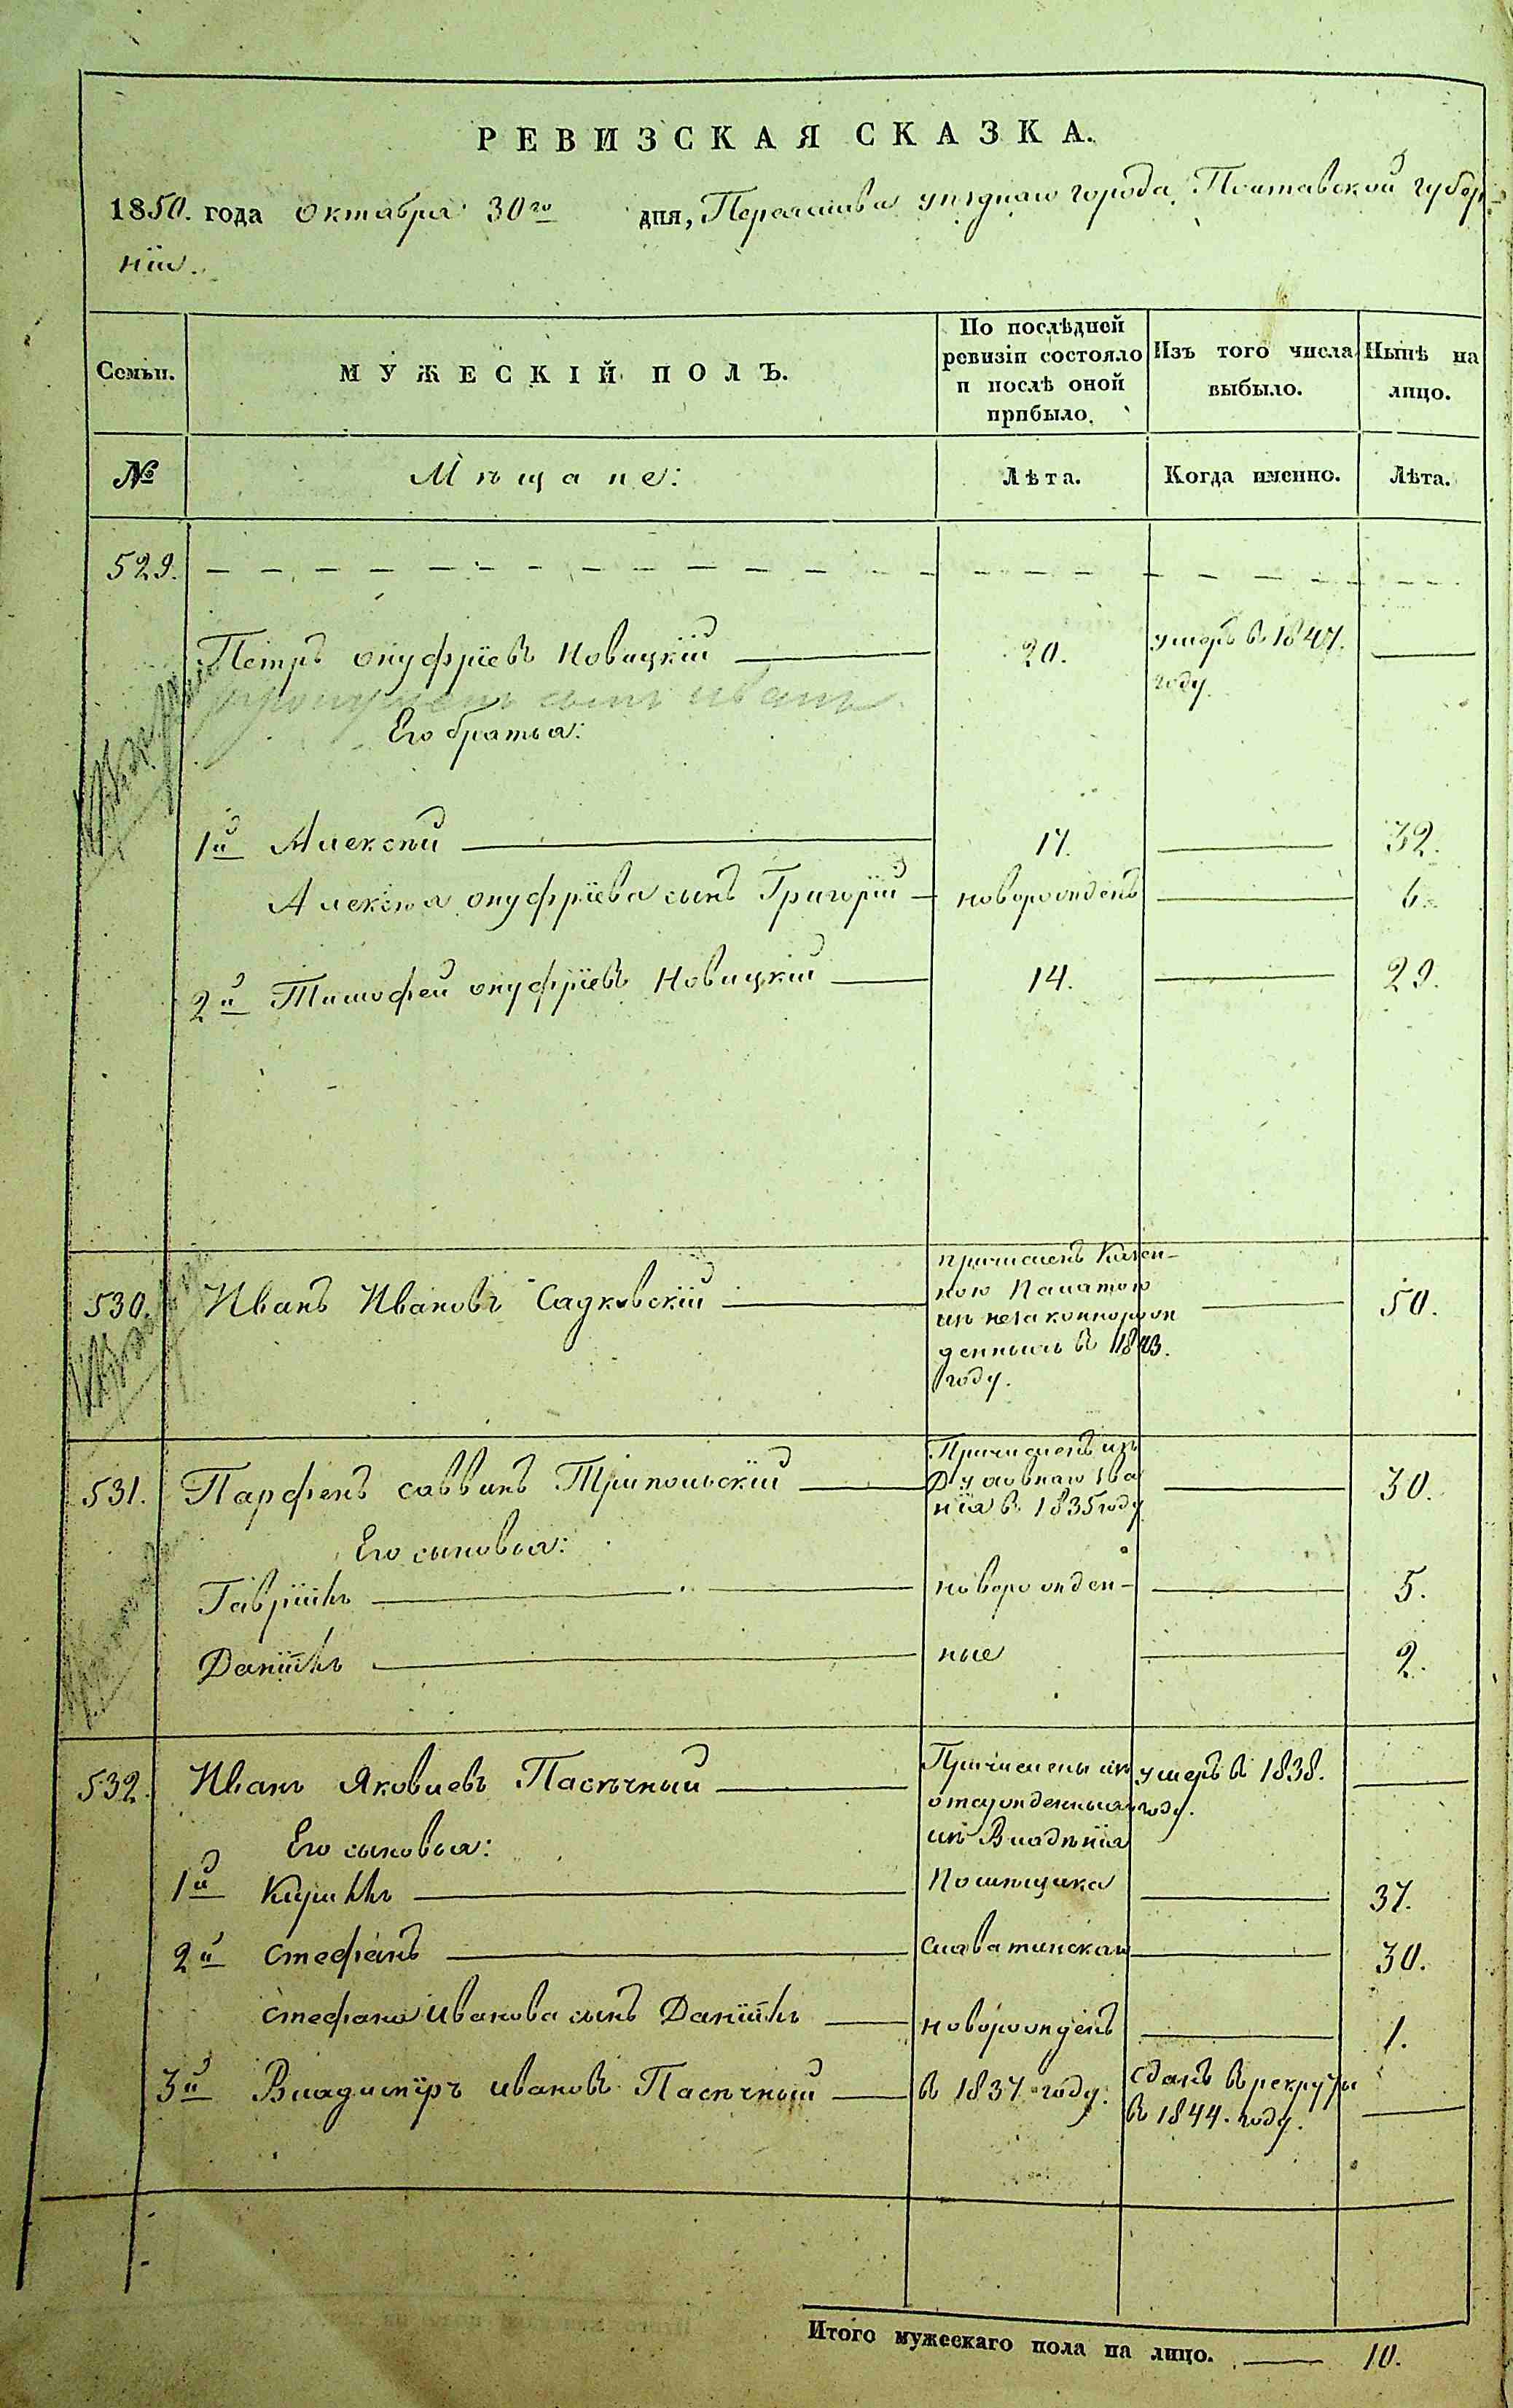 РЕВИЗСКАЯ СКАЗКА.
1850. года октября 30го дня, Переяслава уѣзднаго города, Полтавской губер-
нiи.
Семьи. МУЖЕСКІЙ ПОЛЪ. По послѣдней ревизіи состояло и послѣ оной прибыло. Изъ того числа выбыло. Нынѣ на лицо.
№ Мѣщане: Лѣта. Когда именно. Лѣта.
529.
Петръ онуфрiевъ Новицкiй 20. умеръ въ 1847.
году.
сынъ иванъ
Его братья:
1й Алексѣй 17. 32.
Алексѣя онуфрiева сынъ Григорiй новорожденъ 6.
2й Тимофей онуфрiевъ Новицкiй 14. 29.
530. Иванъ Ивановъ Садковскiй причисленъ Казен-
ною Палатою
изъ незаконнорож
денныхъ въ 1843.
году. 50.
531. Парфенъ саввинъ Трипольскiй Причисленъ изъ
Духовнаго зва
нiя въ 1835 году 30.
Его сыновья:
Гаврiилъ новорожден- 5.
Данiилъ ные 2.
532. Иванъ Яковлевъ Пасѣчный Причислены изъ умеръ въ 1838.
отсужденныхъ году.
Его сыновья: изъ Владѣнiя
1й Кирилъ Помѣщика 37.
2й стефанъ 30.
стефана иванова сынъ Данiилъ новорожденъ 1.
3й Владимiръ ивановъ Пасѣчный въ 1837 году. сданъ въ рекруты
въ 1844. году.
Итого мужескаго пола на лицо. 10.